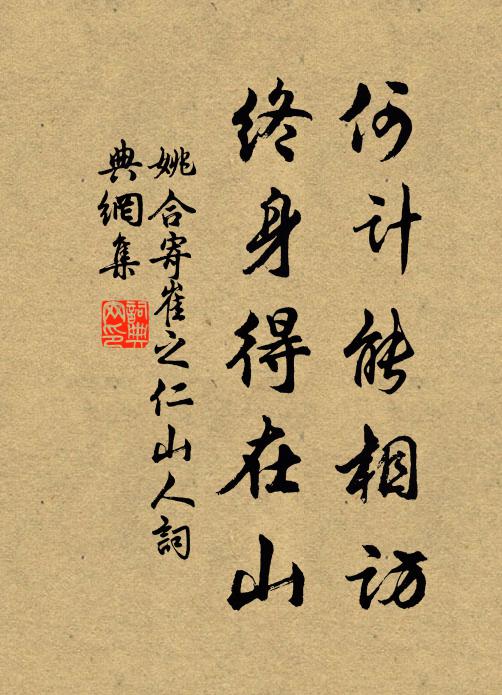 何计能相访
终身得在山
姚合寄崔之仁山人詞
典網集
詞典
网印